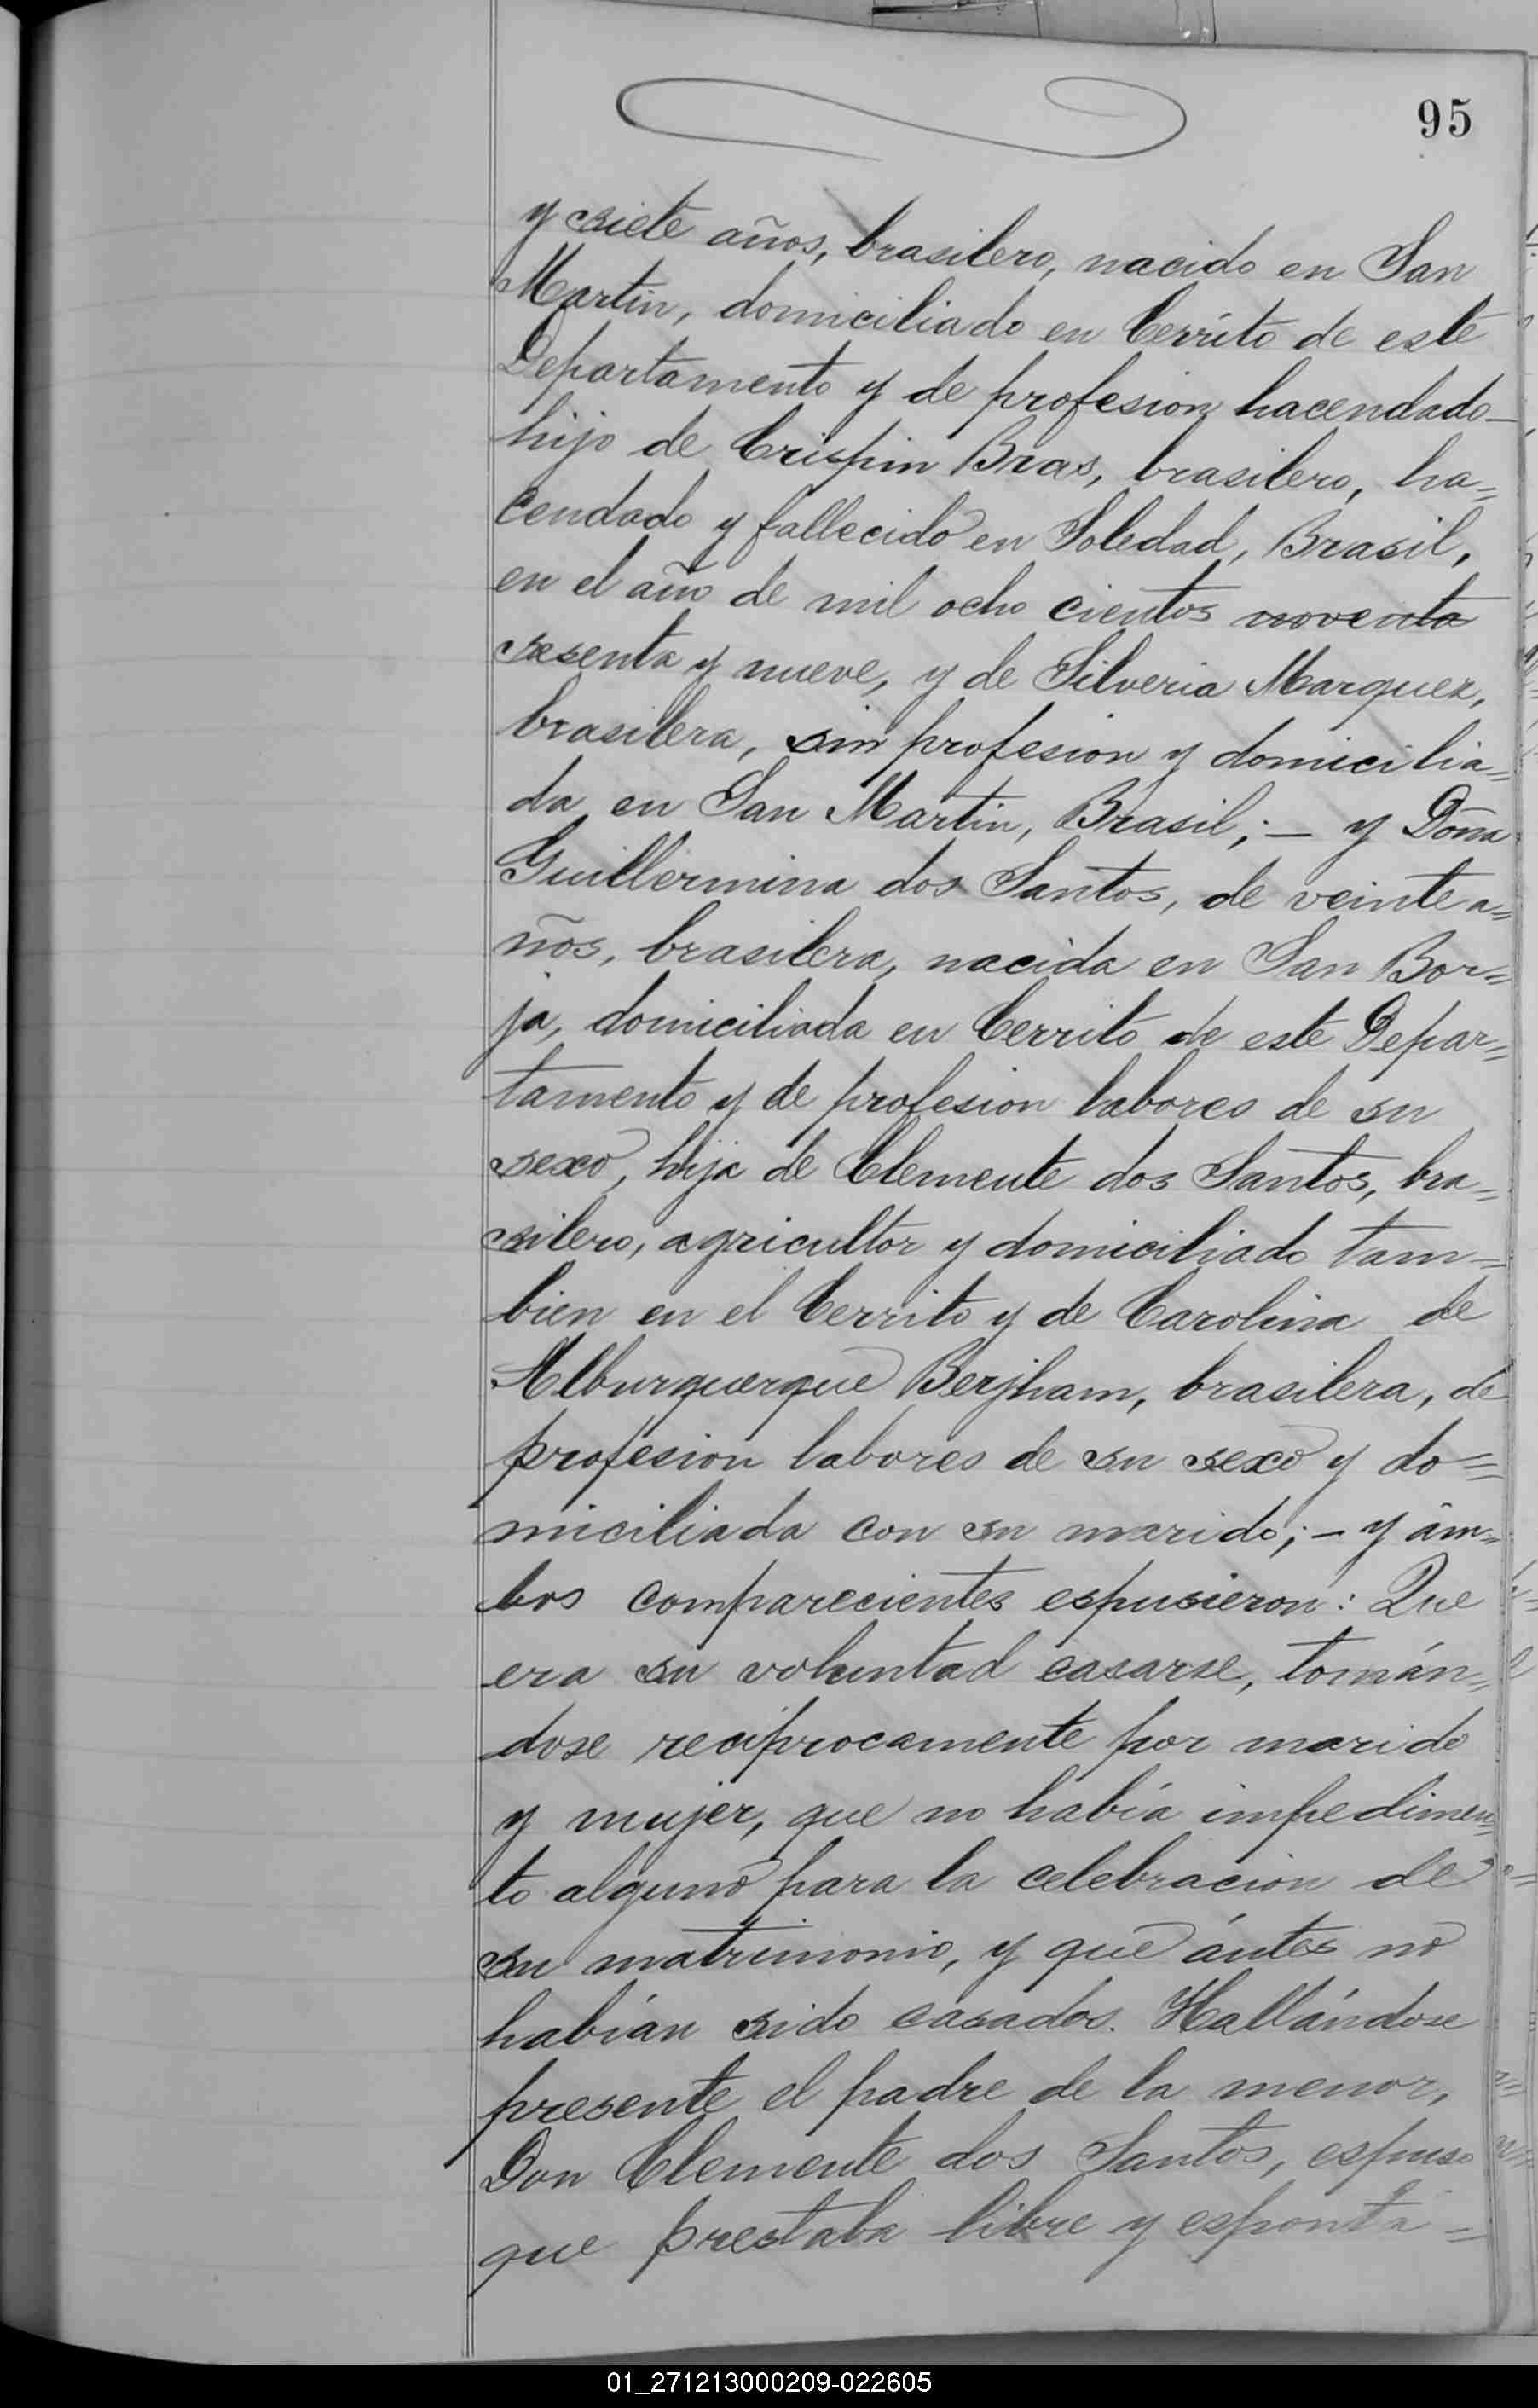 95
y siete años, brasilero, nacido en San
Martin, domiciliado en Cerrito de este
Departamento y de profesion hacendado—
hijo de Crispin Bras, brasilero, ha=
cendado y fallecido en Soledad, Brasil,
en el año de mil ocho cientos noventa
sesenta y nueve, y de Silveria Marquez,
brasilera, sin profesion y domicilia=
da en San Martin, Brasil; — y Doña
Guillermina dos Santos, de veinte a=
ños, brasilera, nacida en San Bor=
ja, domiciliada en Cerrito de este Depar=
tamento y de profesion labores de su
sexo, hija de Clemente dos Santos, bra=
silero, agricultor y domiciliado tam=
bien en el Cerrito y de Carolina de
Alburquerque Berjham, brasilera, de
profesion labores de su sexo y do=
miciliada con su marido; — y ám=
bos comparecientes espusieron: Que
era su voluntad casarse, tomán=
dose reciprocamente por marido
y mujer, que no había impedimen=
to alguno para la celebracion de
su matrimonio, y que ántes no
habían sido casados. Hallándose
presente el padre de la menor,
Don Clemente dos Santos, espuso
que prestaba libre y espontá=
01_271213000209-022605